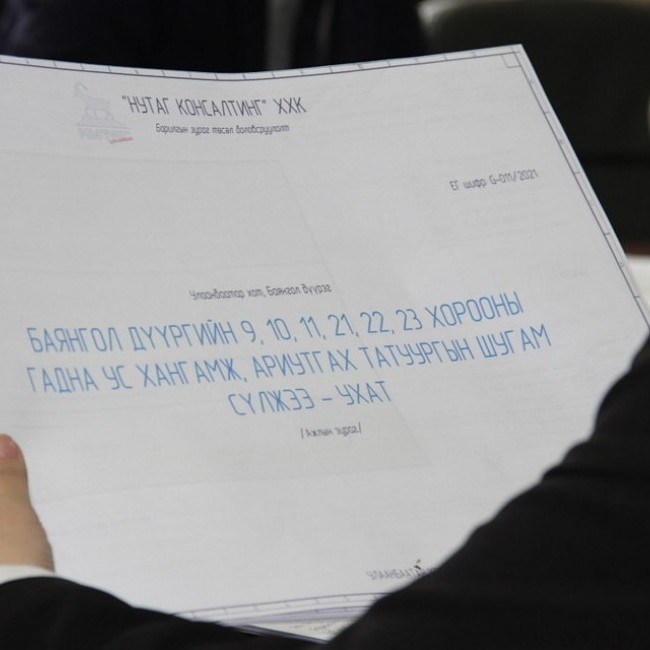 "НУТАГ КОНСАЛТИНГ" ХХК
Барилгын зураг төсөл боловсруулалт
ЕГ шифр G-011/2021
Улаанбаатар хот, Баянгол дүүрэг
БАЯНГОЛ ДҮҮРГИЙН 9, 10, 11, 21, 22, 23 ХОРООНЫ
ГАДНА УС ХАНГАМЖ, АРИУТГАХ ТАТУУРГЫН ШУГАМ
СҮЛЖЭЭ - УХАТ
/Ажлын зураг/